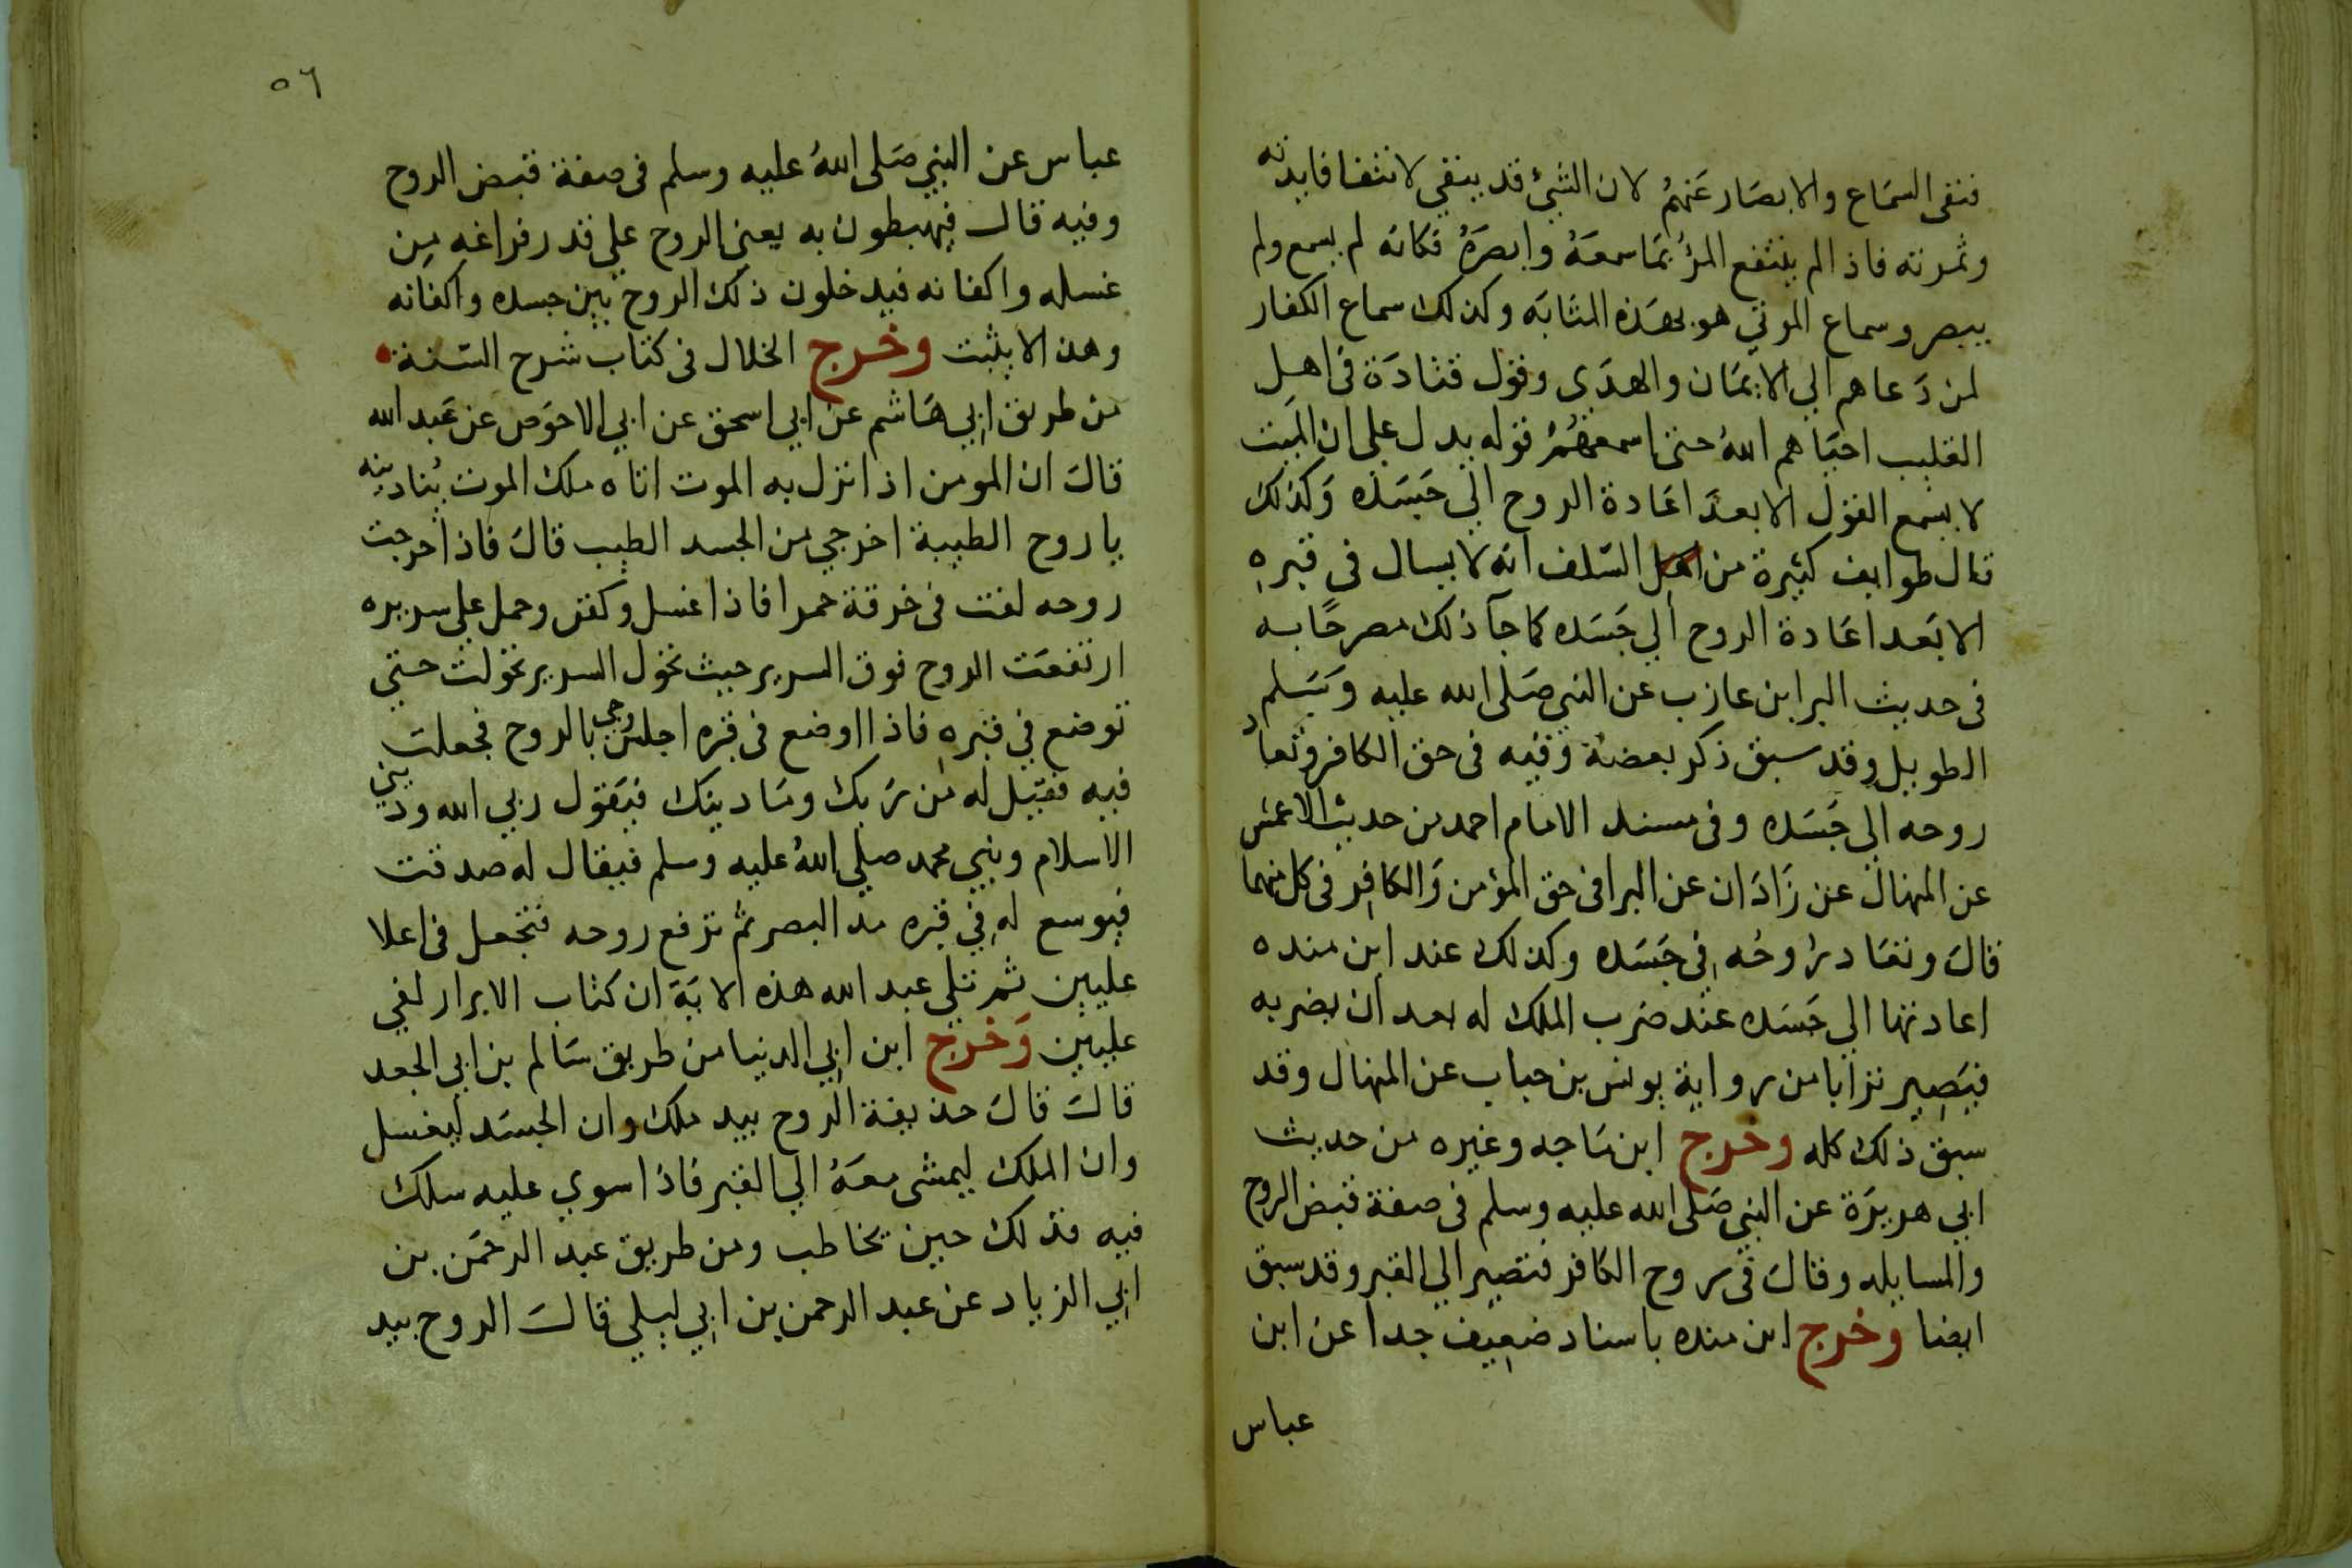 فنفى السماع والابصار عنهم لان الشئ قد ينفى لانتفا فايدته
وثمرته فاذا لم ينتفع المرؤ بما سمعه وابصره فكانه لم يسمع ولم
يبصر وسماع الموتي هو بهذه المثابه وكذلك سماع الكفار
لمن دعاهم الي الايمان والهدى وقول قتادة في اهل
القليب احياهم الله حتى اسمعهم قوله يدل على ان الميت
لا يسمع القول الا بعد اعادة الروح الي جسده وكذلك
قال طوايف كثيرة من اهل السلف انه لا يسال في قبره
الا بعد اعادة الروح الي جسده كما جآ ذلك مصرحا به
في حديث البرا بن عازب عن النبي صلى الله عليه وسلم
الطويل وقد سبق ذكر بعضه وفيه في حق الكافر وتعاد
روحه الي جسده وفي مسند الامام احمد من حديث الاعمش
عن المنهال عن زاذان عن البرا في حق المؤمن والكافر في كل منهما
قال وتعاد روحه في جسده وكذلك عند ابن منده
اعادتها الي جسده عند ضرب الملك له بعد ان يضربه
فيصير ترابا من رواية يونس بن خباب عن المنهال وقد
سبق ذلك كله وخرج ابن ماجه وغيره من حديث
ابي هريرة عن النبي صلى الله عليه وسلم في صفة قبض الروح
والمسايله وقال في روح الكافر فتصير الي القبر وقد سبق
ايضا وخرج ابن منده باسناد ضعيف جدا عن ابن
عباس
٥٦
عباس عن النبي صلى الله عليه وسلم في صفة قبض الروح
وفيه قال فيهبطون به يعني الروح علي قدر فراغه من
غسله واكفانه فيدخلون ذلك الروح بين جسده واكفانه
وهذا لا يثبت وخرج الخلال في كتاب شرح السنة
من طريق ابي هاشم عن ابي اسحق عن ابي الاحوص عن عبد الله
قال ان المومن اذا نزل به الموت اتاه ملك الموت يناديه
يا روح الطيبة اخرجي من الجسد الطيب قال فاذا خرجت
روحه لفت في خرقة حمرا فاذا غسل وكفن وحمل علي سريره
ارتفعت الروح فوق السرير حيث تحول السرير تحولت حتي
توضع في قبره فاذا اوضع في قبره اجلس وجي بالروح فجعلت
فيه فقيل له من ربك وما دينك فيقول ربي الله وديني
الاسلام ونبيي محمد صلي الله عليه وسلم فيقال له صدقت
فيوسع له في قبره مد البصر ثم ترفع روحه فتجعل في اعلا
عليين ثم تلي عبد الله هذه الاية ان كتاب الابرار لفي
عليين وخرج ابن ابي الدنيا من طريق سالم بن ابي الجعد
قال قال حذيفة الروح بيد ملك وان الجسد ليغسل
وان الملك ليمشي معه الي القبر فاذا سوي عليه سلك
فيه فذلك حين يخاطب ومن طريق عبد الرحمن بن
ابي الزياد عن عبد الرحمن بن ابي ليلي قال الروح بيد